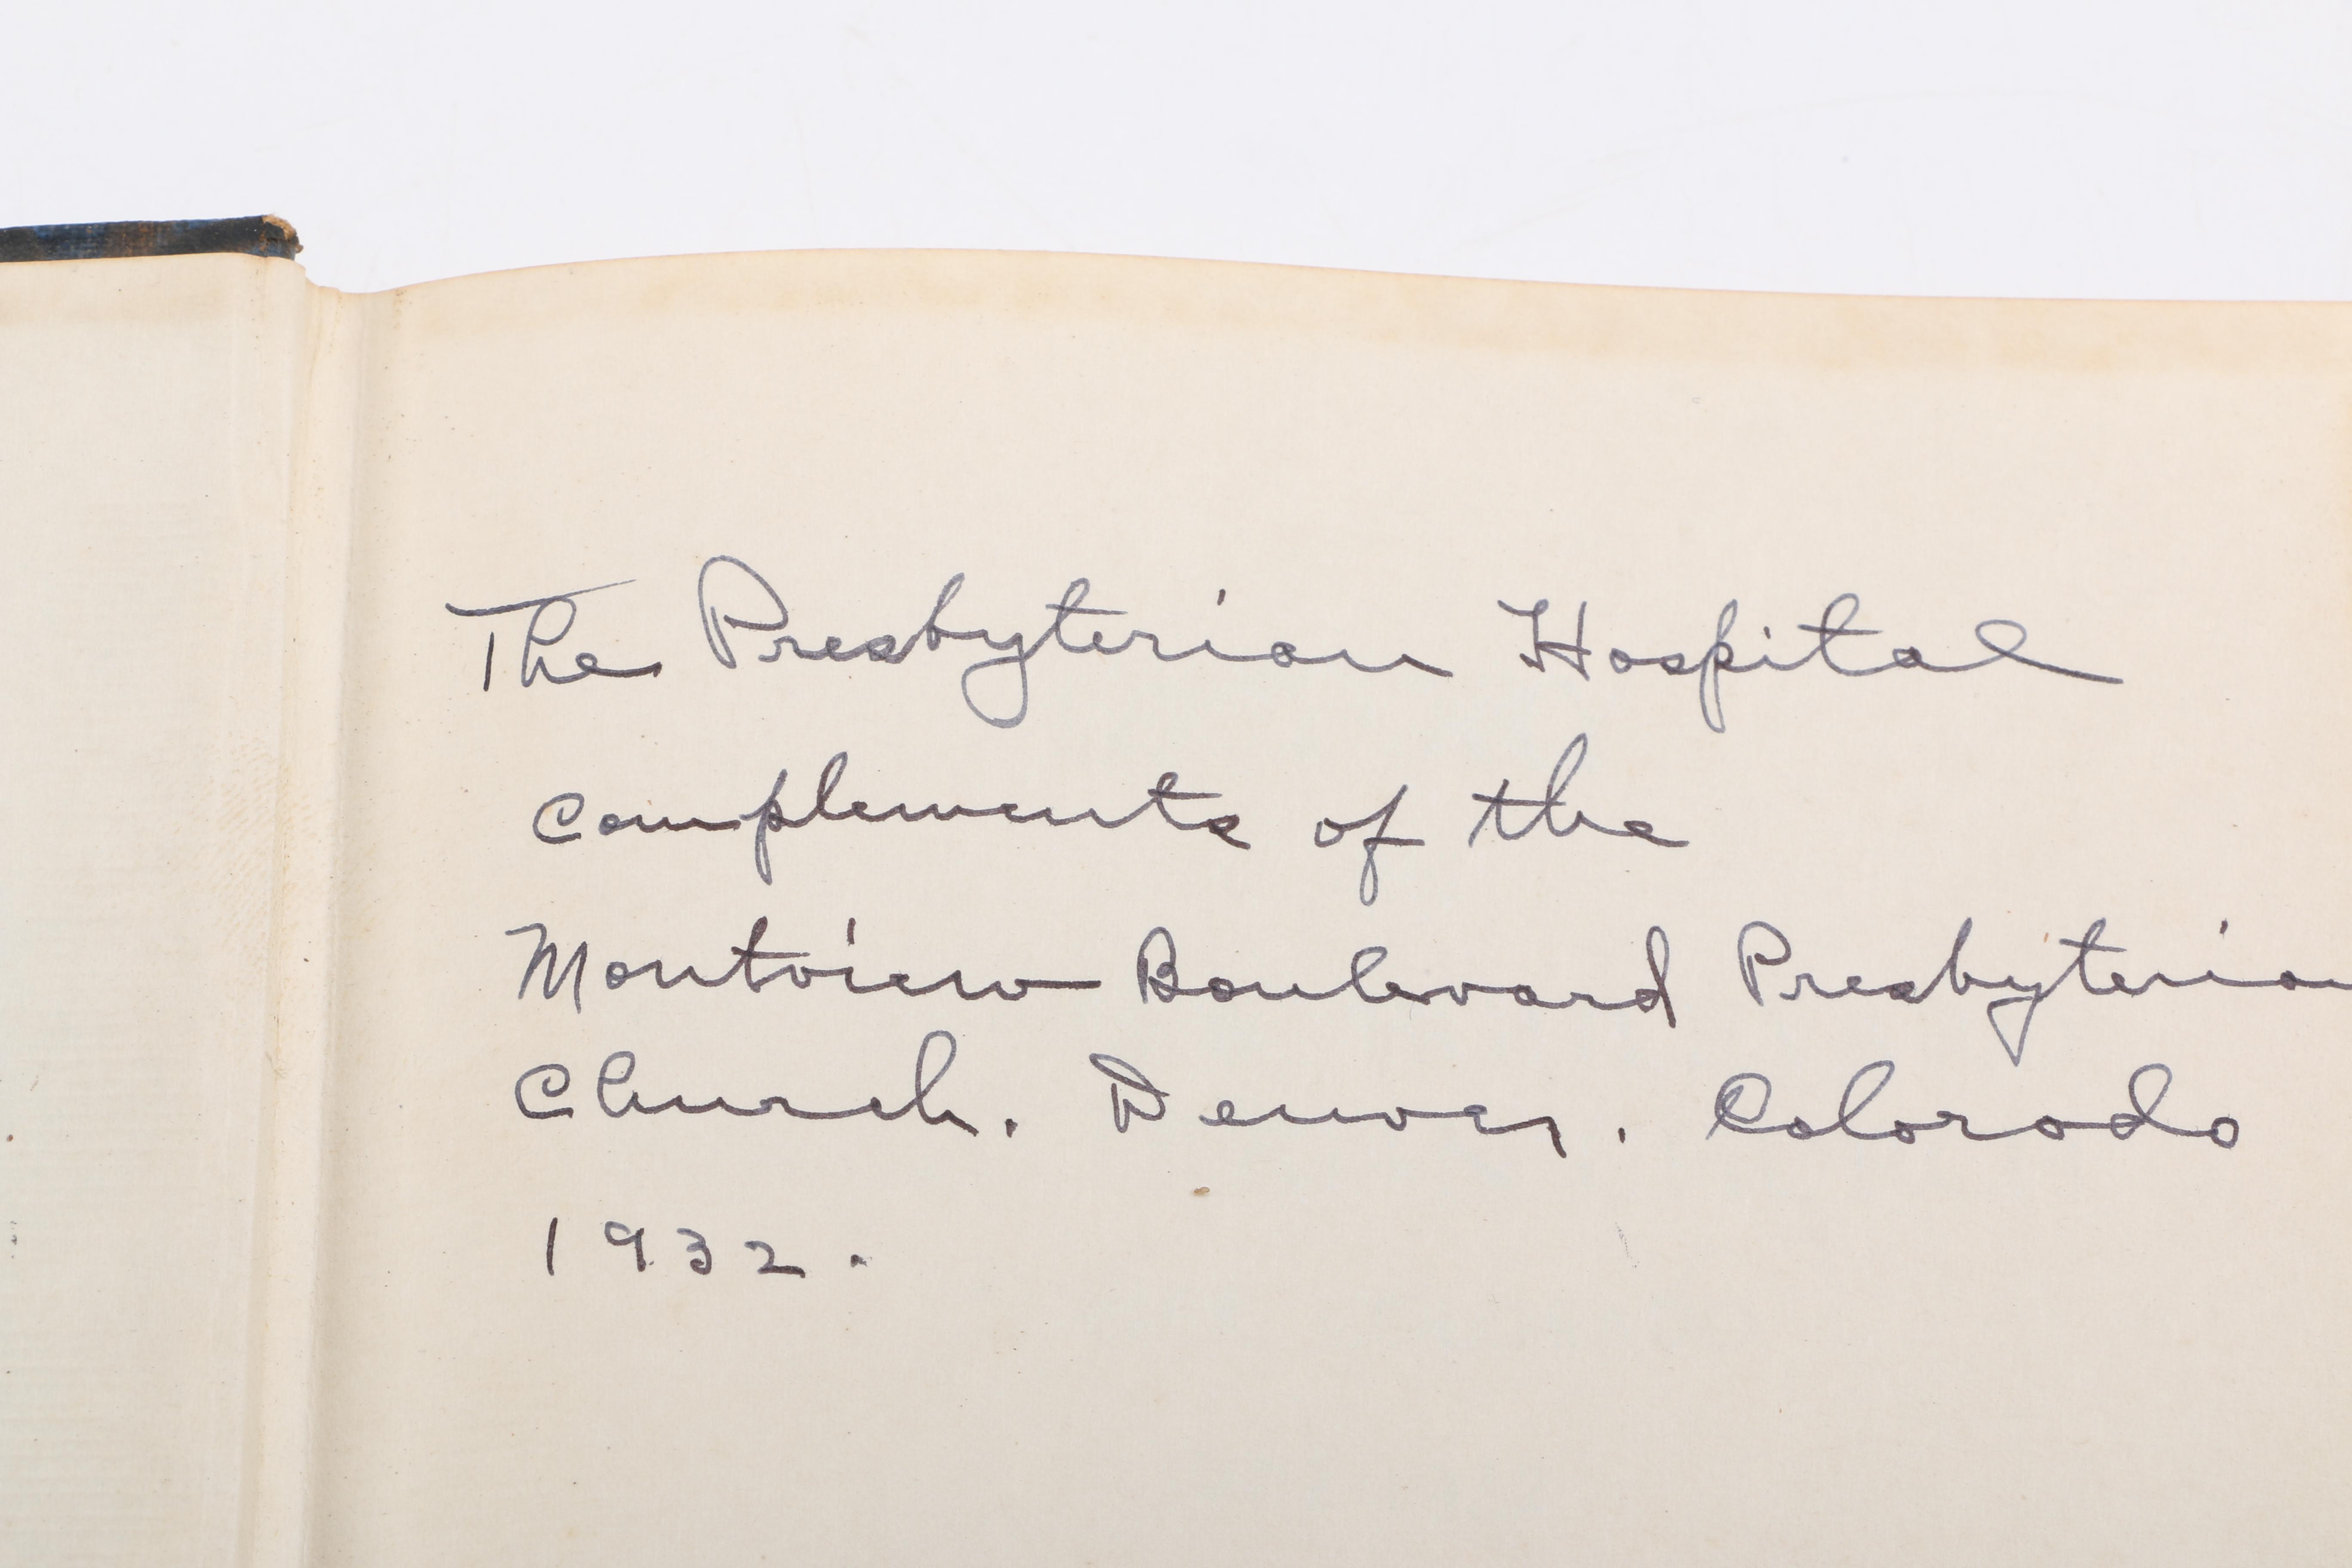 The Presbyterian Hospital
complements of the
Montview Boulevard Presbyterian
Church. Denver. Colorado
1932.